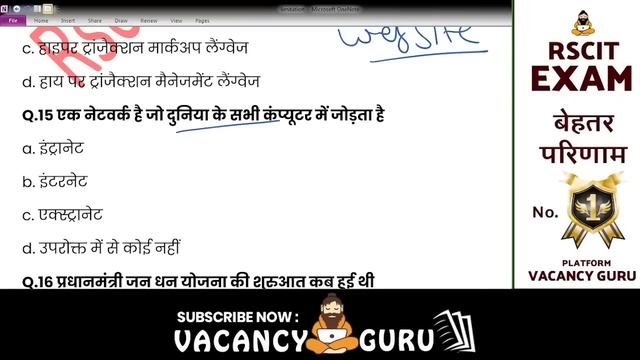 limitation - Microsoft OneNote
File Home Insert Draw History Review View
website
c. हाइपर ट्रांजैक्शन मार्कअप लैंग्वेज
d. हाय पर ट्रांजैक्शन मैनेजमेंट लैंग्वेज
Q.15 एक नेटवर्क है जो दुनिया के सभी कंप्यूटर में जोड़ता है
a. इंट्रानेट
b. इंटरनेट
c. एक्स्ट्रानेट
d. उपरोक्त में से कोई नहीं
Q.16 प्रधानमंत्री जन धन योजना की शुरुआत कब हुई थी
RSCIT
EXAM
बेहतर
परिणाम
No. 1
PLATFORM
VACANCY GURU
SUBSCRIBE NOW :
VACANCY GURU